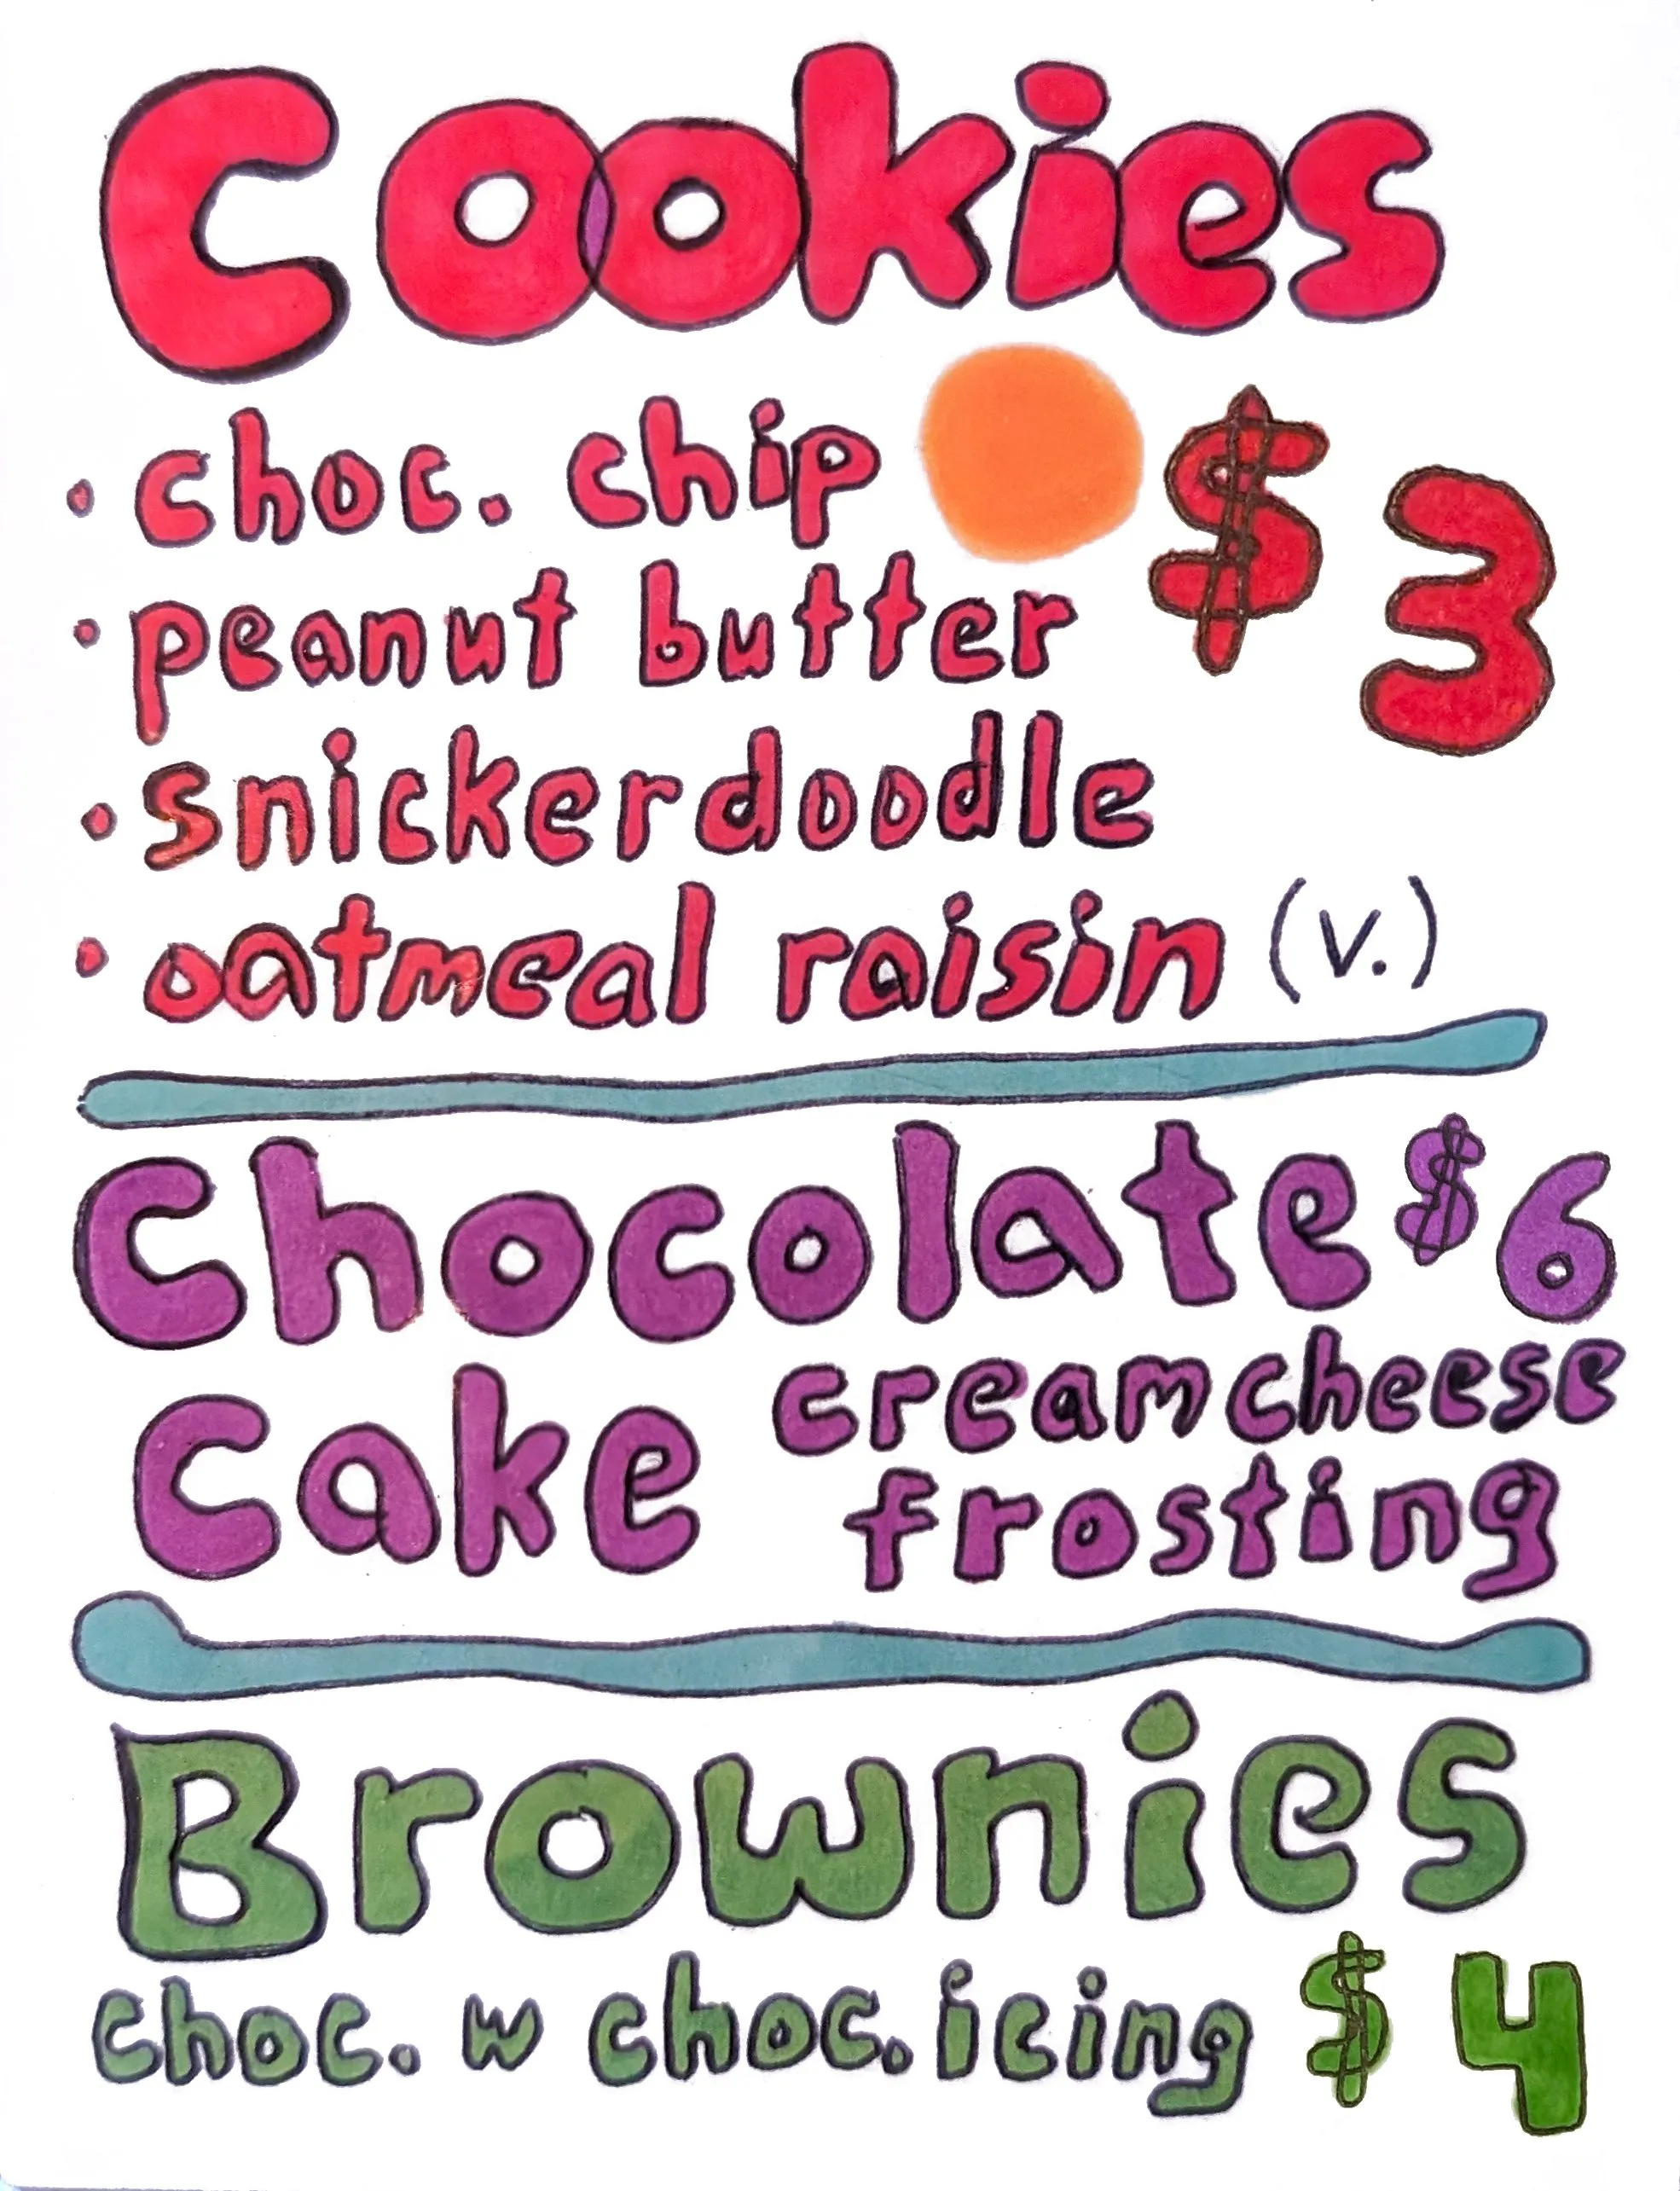 Cookies
• choc. chip $3
• peanut butter
• snickerdoodle
• oatmeal raisin (v.)
Chocolate $6
Cake creamcheese
frosting
Brownies
choc. w choc. icing $4